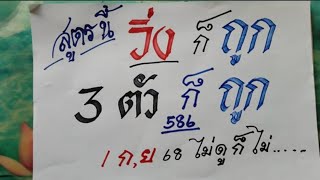 สูตรนี้ วิ่ง ก็ ถูก
3 ตัว ก็ ถูก
586
1 ก,ย 68 ไม่ดู ก็ ไม่.....